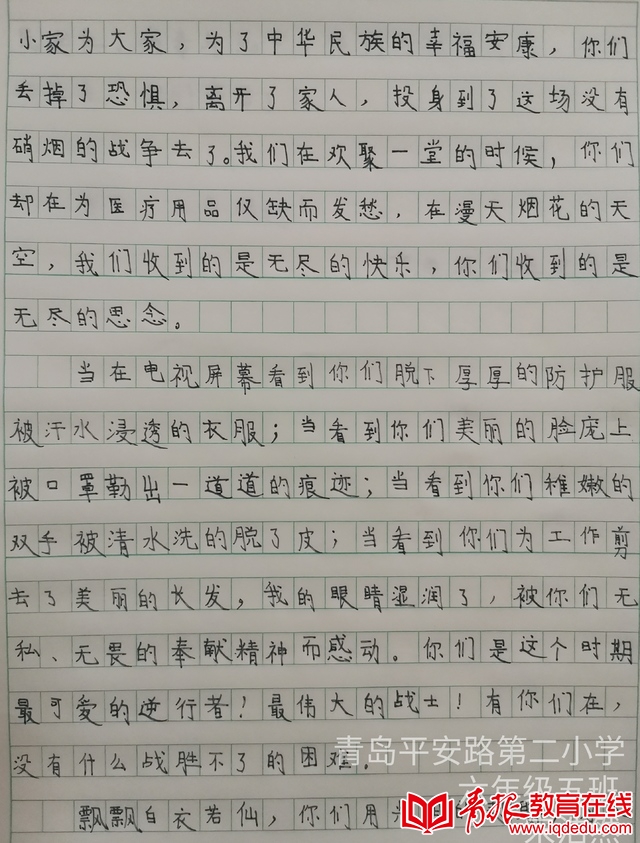 小家为大家，为了中华民族的幸福安康，你们
丢掉了恐惧，离开了家人，投身到了这场没有
硝烟的战争去了。我们在欢聚一堂的时候，你们
却在为医疗用品仅缺而发愁，在漫天烟花的天
空，我们收到的是无尽的快乐，你们收到的是
无尽的思念。
当在电视屏幕看到你们脱下厚厚的防护服
被汗水浸透的衣服；当看到你们美丽的脸庞上
被口罩勒出一道道的痕迹；当看到你们稚嫩的
双手被清水洗的脱了皮；当看到你们为工作剪
去了美丽的长发，我的眼睛湿润了，被你们无
私、无畏的奉献精神而感动。你们是这个时期
最可爱的逆行者！最伟大的战士！有你们在，
没有什么战胜不了的困难。
飘飘白衣若仙，你们用
青岛平安路第二小学
六年级五班
青报教育在线
www.iqdedu.com